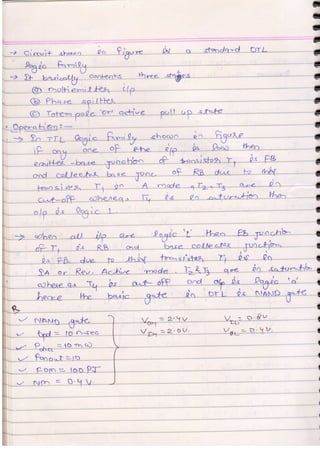 → Circuit shown in Figure is a standard DTL
Logic family
→ It basically contents three stages
(a) multiemitter i/p
(b) Phase splitter
(c) Totempole 'or' active pull up state
• Operation :-
→ In TTL Logic Family shown in figure
if any one of the i/p is low then
emitter-base junction of transistor T1 is FB
and collector base junc. of RB due to this
transistor T1 in A mode, T2 & T3 are in
cut-off whereas T4 is in saturation then
o/p is logic 1
→ when all i/p are logic '1' then EB junction
of T1 is RB and base collector junction
is FB due to this transistor T1 is in
SA or Rev. Active mode. T2 & T3 are in saturation
whereas T4 is cut-off and o/p is logic '0'
hence the basic gate in DTL is NAND gate
✓ NAND gate
✓ tpd = 10 n-sec
✓ = 10 mw
✓ Fanout = 10
✓ FOM = 100 PJ
✓ NM = 0.4 V
VOH = 2.4 V VIL = 0.8 V
VIH = 2.0 V VOL = 0.4 V